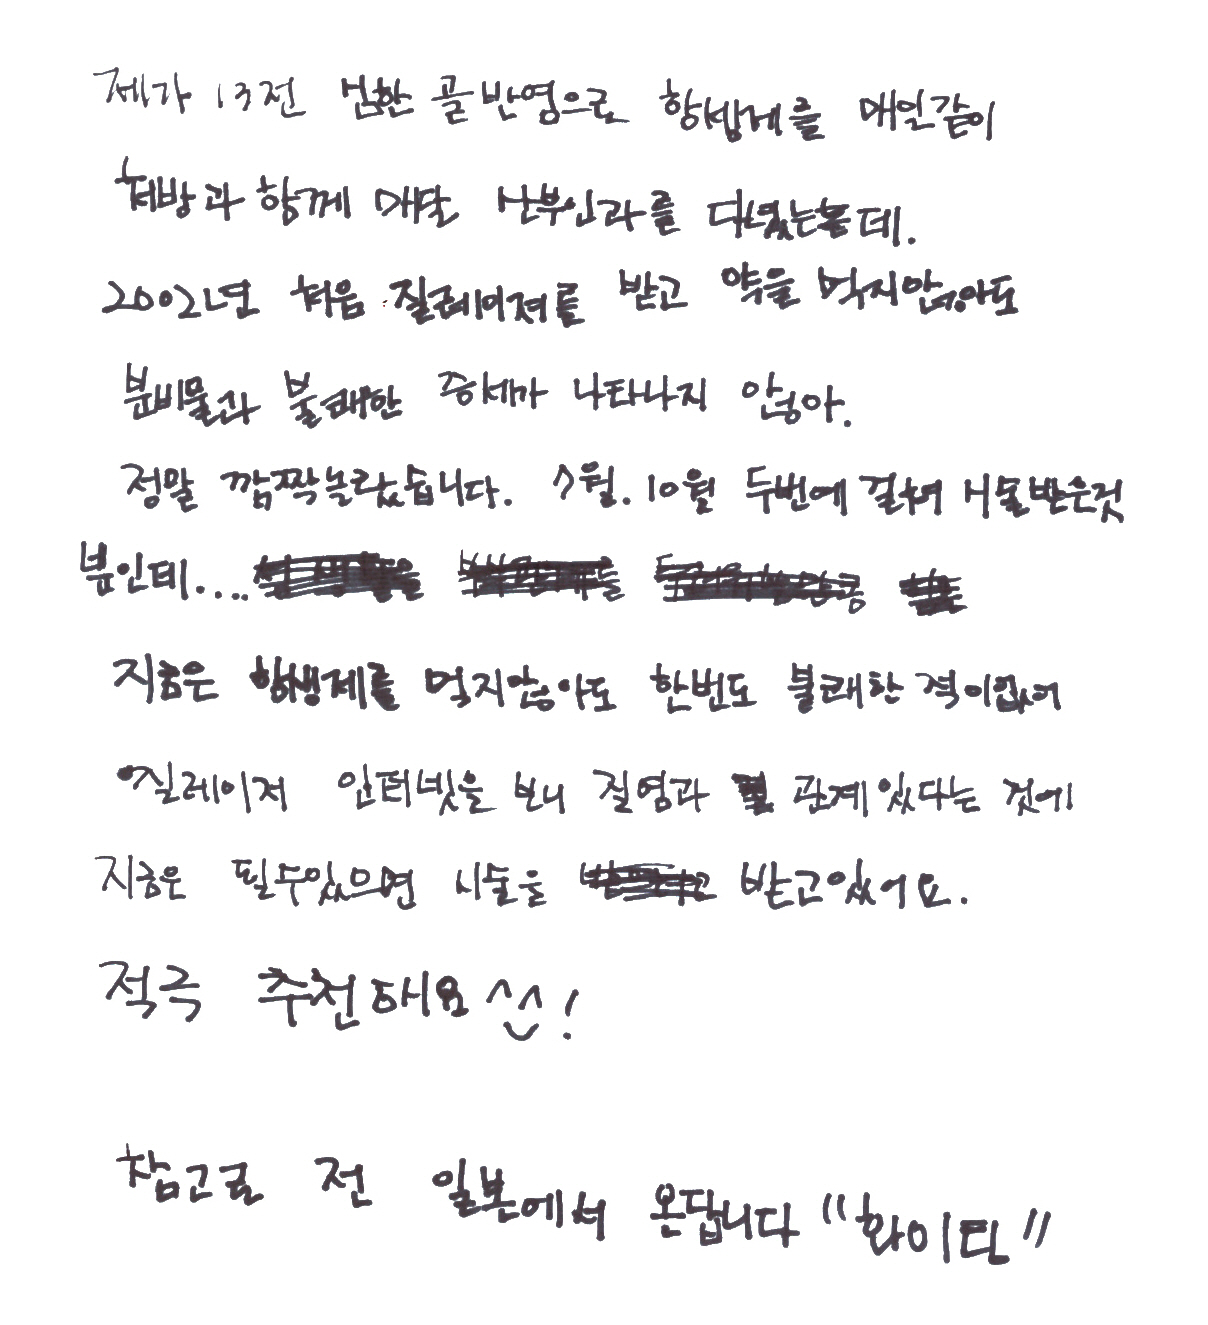 제가 13전 심한 골반염으로 항생제를 매일같이
처방과 함께 매달 산부인과를 다녔는데.
2002년 처음 질레이져를 받고 약을 먹지않아도
분비물과 불쾌한 증세가 나타나지 않아.
정말 깜짝놀랐습니다. 7월. 10월 두번에 걸쳐 시술받은것
뿐인데....
지금은 항생제를 먹지않아도 한번도 불쾌한 적이없어
질레이저 인터넷을 보니 질염과 관계있다는 것에
지금은 필수있으면 시술을 받고있어요.
적극 추천해요^^!
참고로 전 일본에서 온답니다 "화이틴"